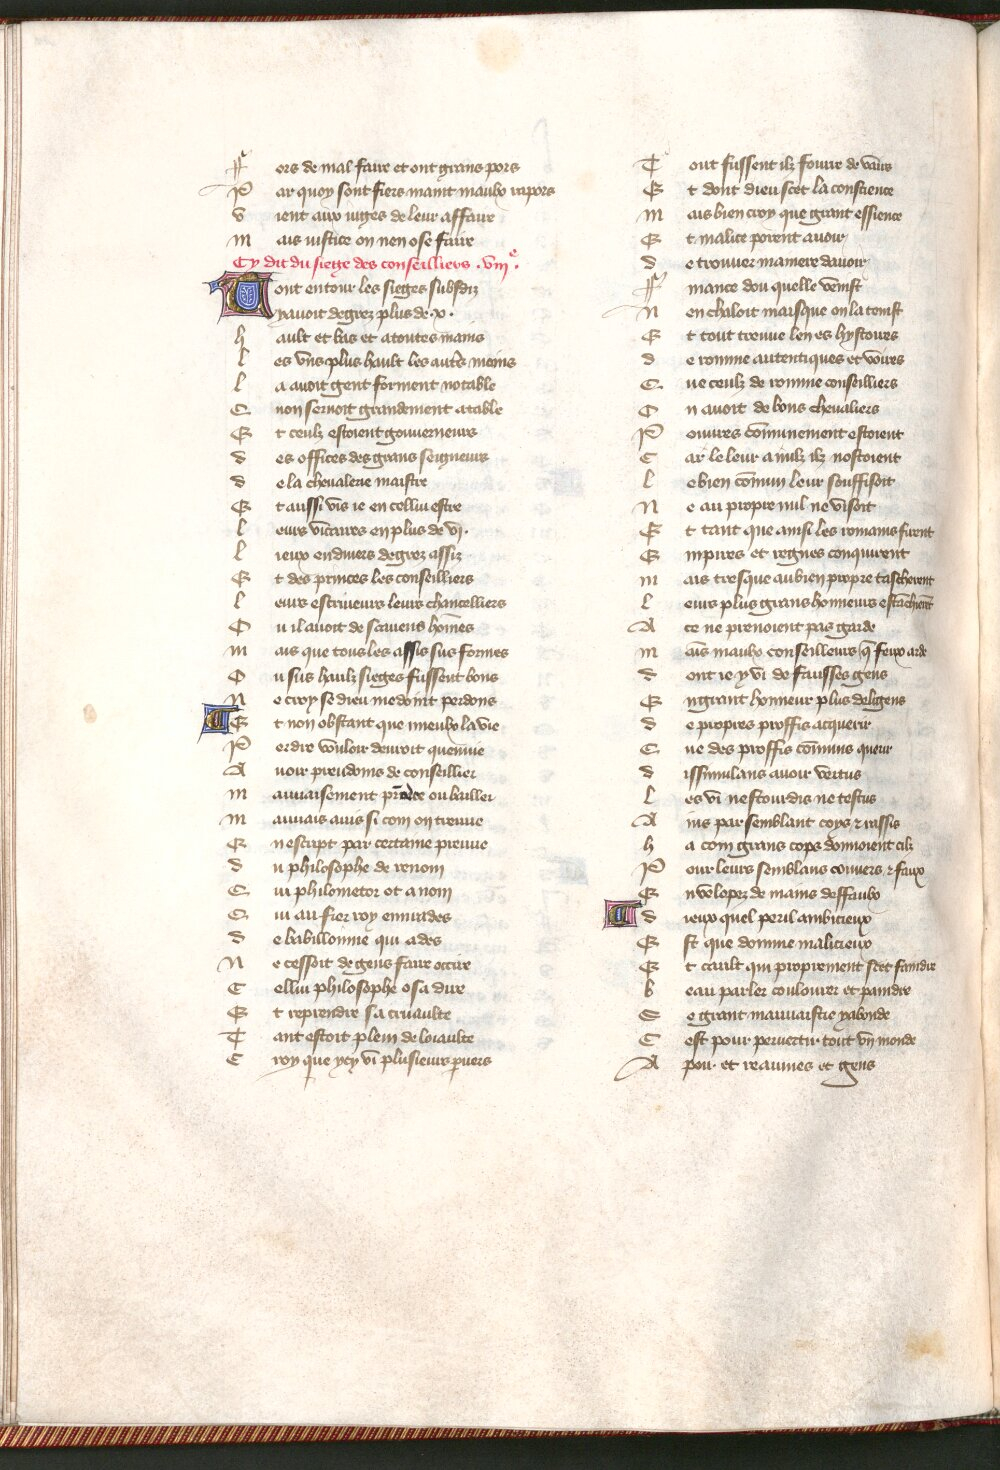 Fors de mal faire et ont grans pors
Par quoy sont fiers maint mauvo rapors
Vient aux iuges de leur affaire
Mais iustice on nen ose faire
Cy dit du siege des conseilliers .viije.
Tout entour les sieges subsdiz
yavoit degrez plus de .x.
hault et bas et a toutes mains
les vns plus hault les autres moins
la avoit gent forment notable
Con servoit grandement a table
Et ceulx estoient gouverneurs
des offices des grans seigneurs
de la chevalerie maistre
Et aussi vis ie en celluy estre
leurs vicaires en plus de vi.
lieux en divers degrez assiz
Et des princes les conseilliers
leurs escriveurs leurs chancelliers
Ou il avoit de scavens hommes
mais que tous les assis sus formes
Ou sus haulz sieges fussent bons
Ne croy se dieu me doint perdons
Et non obstant que mieulx la vie
Perdre vouloir devroit quenvie
Avoir preudoms de conseillier
mauvaisement prince ou baillier
mauvais avis si com on treuve
En escript par certaine preuve
du philosophe de renom
Cui philometor ot a nom
Cui au fier roy enmirades
de babillonnie qui ades
Ne cessoit de gens faire occire
Cellui philosophe osa dire
Et reprendre sa cruaulte
Tant estoit plein de loiaulte
Croy que yey vi plusieurs pervers
Tout fussent ilz fourre de vairs
Et dont dieu scet la conscience
mais bien croy que grant essience
Et malice porent avoir
de trouver maniere davoir
Finance dou quelle venist
Nen chaloit mais que on la tenist
Et tout treuve len es hystoires
de romme autentiques et voires
Que ceulz de romme conseilliers
On avoit de bons chevaliers
Pouvres communement estoient
Car le leur a nulz ilz nostoient
le bien commun leur souffisoit
Ne au propre nul ne visoit
Et tant que ainsi les romains furent
Empires et regnes conquirent
mais tresque au bien propre tascherent
leurs plus grans honneurs estachierent
A ce ne prenoient pas garde
mais mauvo conseilleurs que feux arde
dont ie y vi de fausses gens
En grant honneur plus deligens
de propres proffis acquerir
Que des proffis communs querir
dissimulans avoir vertus
les vi ne stourdis ne testus
Ains par semblant coys et rassis
ha com grans cops donnoient cilz
Pour leurs semblans couvers et faux
Envelopez de mains deffaulx
dieux quel peril ambicieux
Est que domme malicieux
Et cault qui proprement scet faindre
beau parler coulourer et paindre
Se grant mauvaistie yabonde
Cest pour pervertir tout vn monde
A pou et reaumes et gens